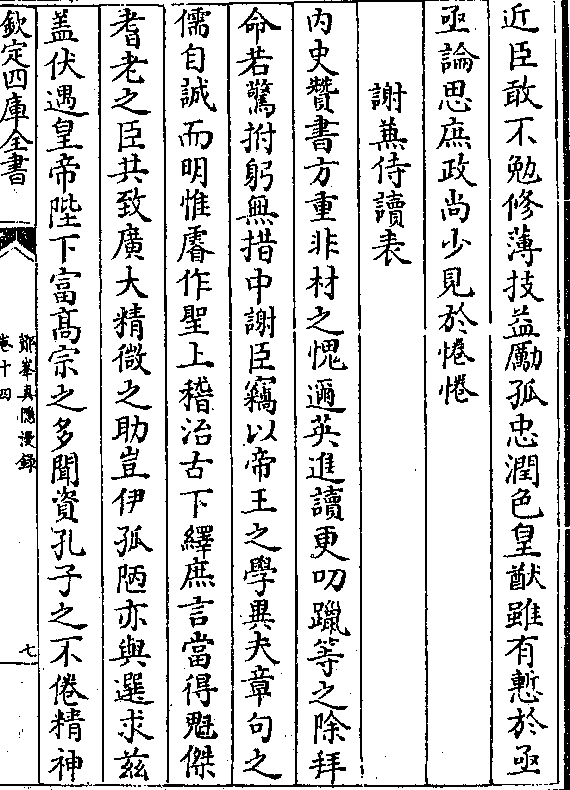 近臣敢不勉修薄技益勵孤忠潤色皇猷雖有慙於亟
亟論思庶政尚少見於惓惓
謝兼侍讀表
内史贊書方重非材之愧邇英進讀更叨躐等之除拜
命若驚拊躬無措中謝臣竊以帝王之學異夫章句之
儒自誠而明惟睿作聖上稽治古下繹庶言當得魁傑
耆老之臣共致廣大精微之助豈伊孤陋亦與選求兹
盖伏遇皇帝陛下富髙宗之多聞資孔子之不倦精神
欽定四庫全書
鄮峯真隱漫錄
卷十四
七